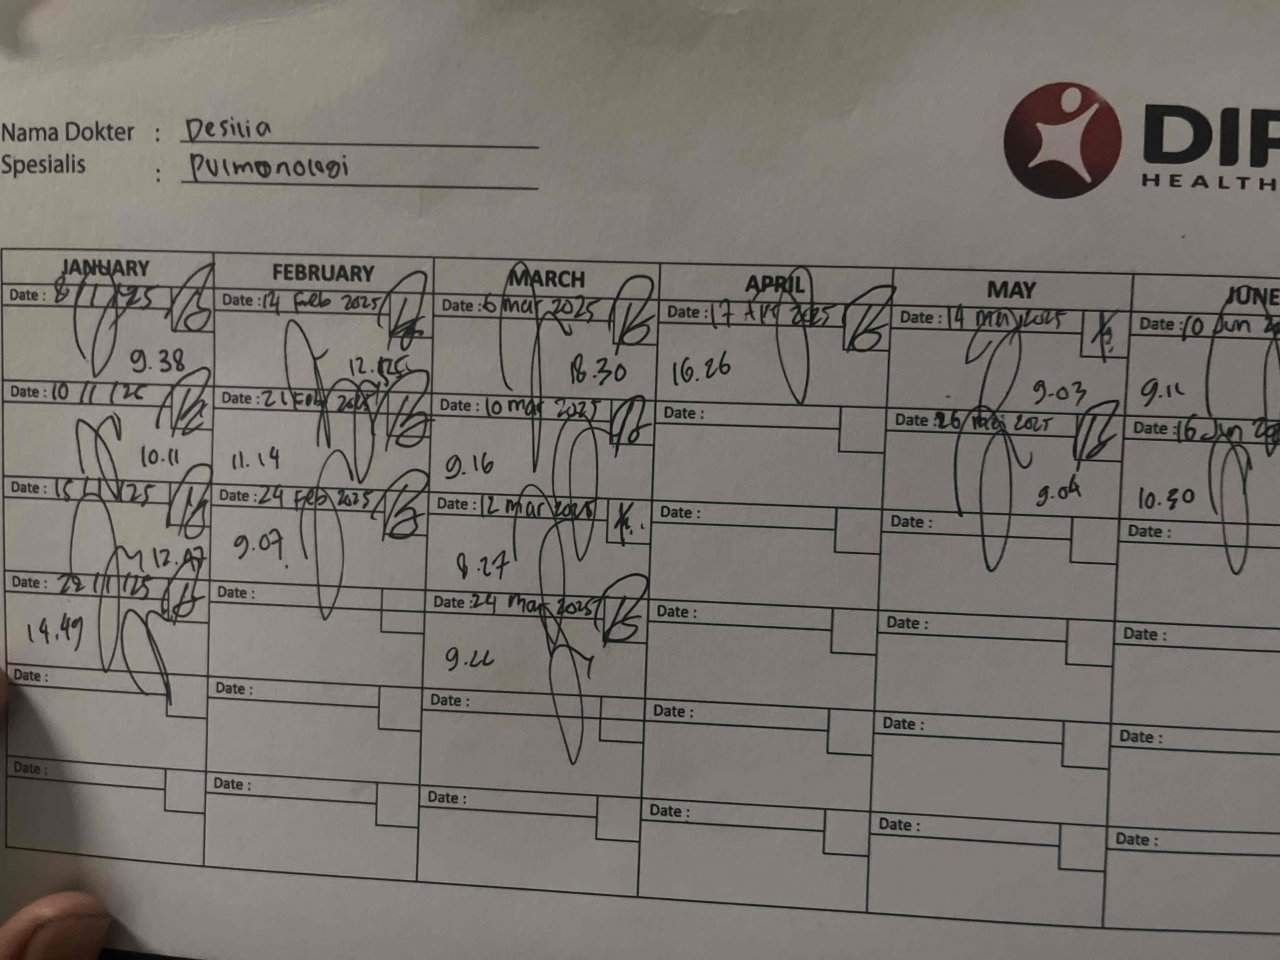 Nama Dokter : Desilia
Spesialis : Pulmonologi
DIP
HEALTH
JANUARY FEBRUARY MARCH APRIL MAY JUNE
Date : 8/1/25 Date : 14 Feb 2025 Date : 6 mar 2025 Date : 17 Apr 2025 Date : 14 may 2025 Date : 10 Jun
9.38 18.30 16.26 9.03 9.11
Date : 10/1/25 Date : 21 Feb 2025 Date : 10 mar 2025 Date : Date : 26 mei 2025 Date : 16 Jun
10.11 11.14 9.16 9.04 10.30
Date : 15/1/25 Date : 24 Feb 2025 Date : 12 mar 2025 Date : Date : Date :
12.47 9.07 8.27
Date : 22/1/25 Date : Date : 24 mar 2025 Date : Date : Date :
14.49
Date : Date : Date : Date : Date : Date :
Date : Date : Date : Date : Date : Date :